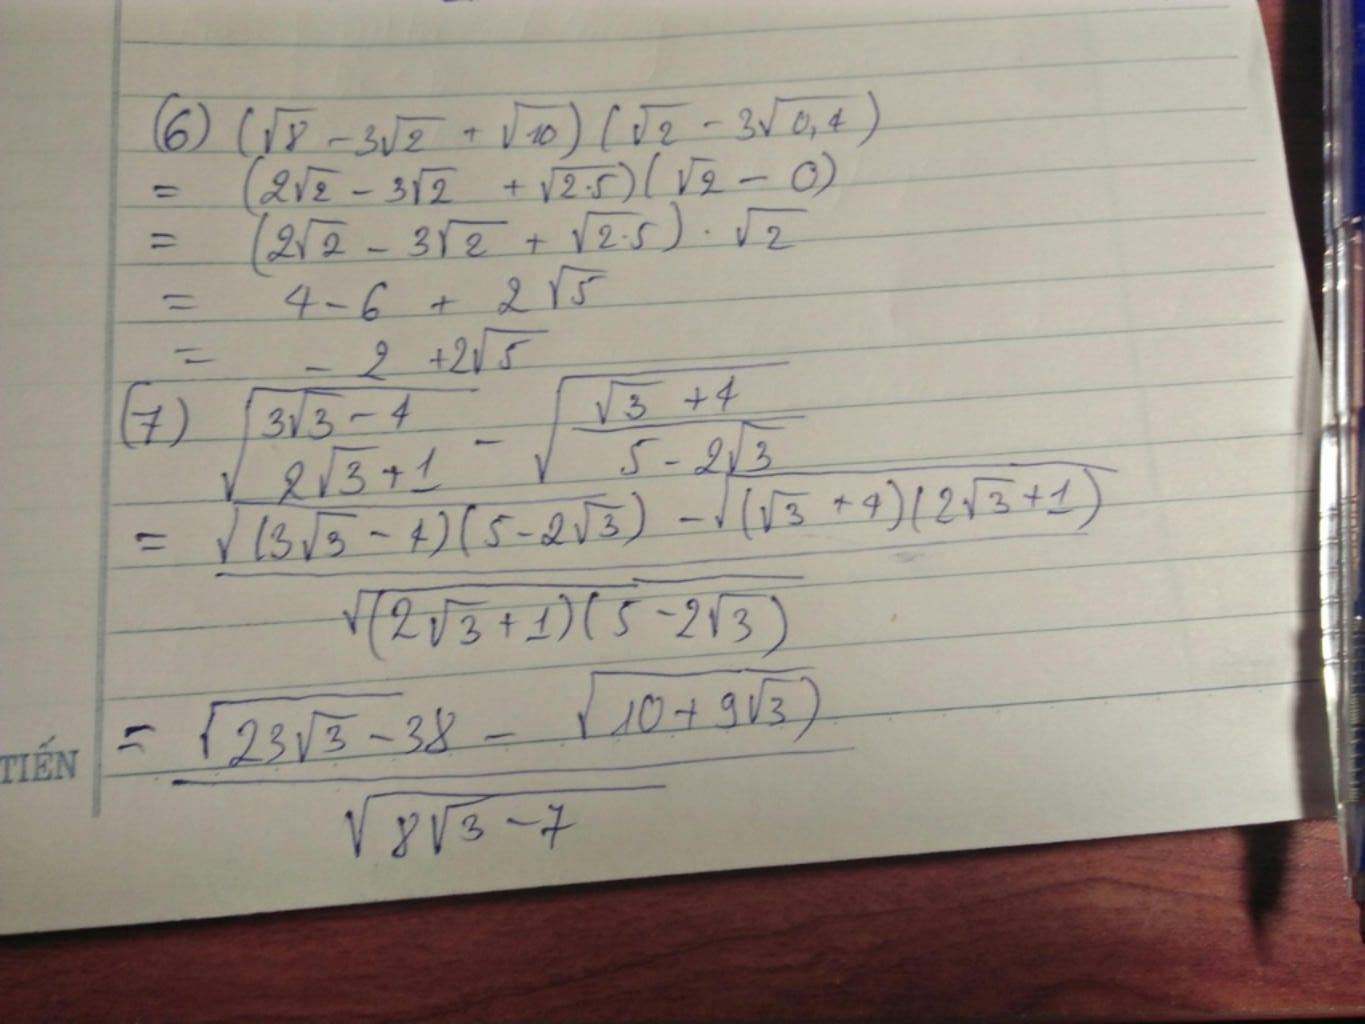 (6) (√8 - 3√2 + √10) (√2 - 3√0,4)
= (2√2 - 3√2 + √2.5) (√2 - 0)
= (2√2 - 3√2 + √2.5) . √2
= 4 - 6 + 2√5
= - 2 + 2√5
(7) √(3√3 - 4 / 2√3 + 1) - √(√3 + 4 / 5 - 2√3)
= √(3√3 - 4)(5 - 2√3) - √(√3 + 4)(2√3 + 1)
√(2√3 + 1)(5 - 2√3)
= √23√3 - 38 - √10 + 9√3)
√8√3 - 7
TIẾN